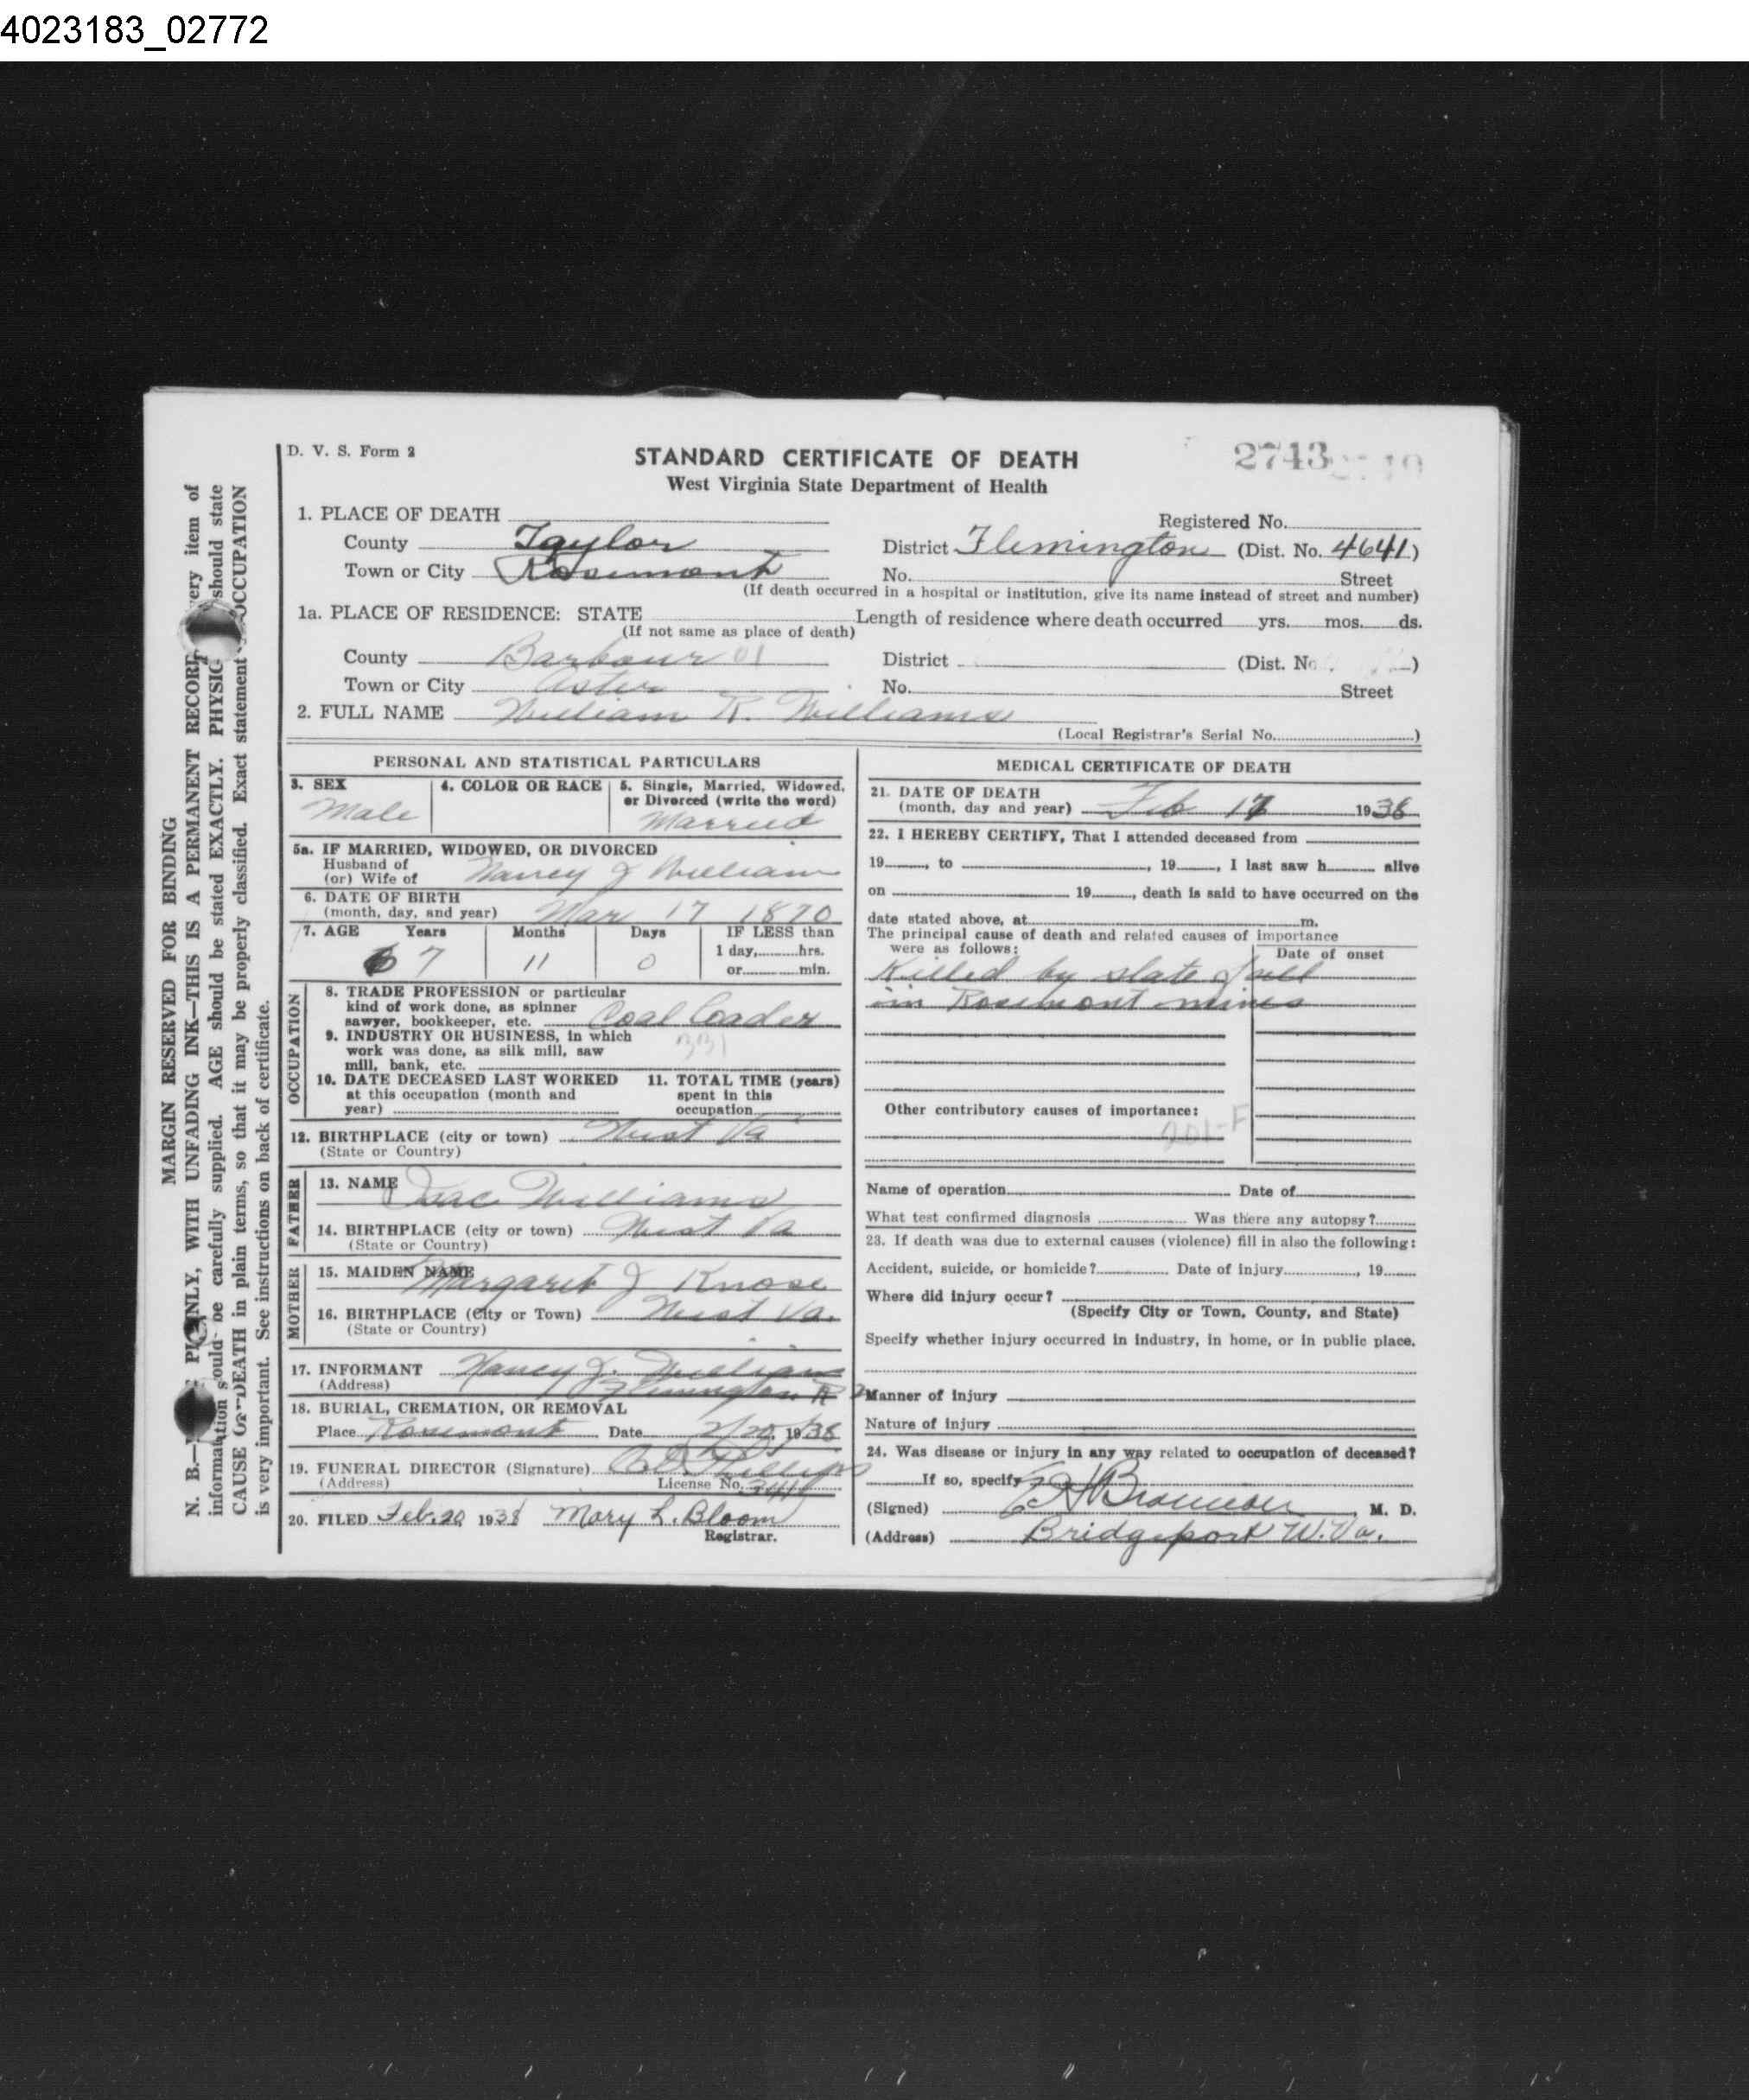 4023183_02772
D. V. S. Form 2
STANDARD CERTIFICATE OF DEATH
2743
West Virginia State Department of Health
1. PLACE OF DEATH
Registered No.
County Taylor District Flemington (Dist. No. 4641)
Town or City Rosemont No. Street
(If death occurred in a hospital or institution, give its name instead of street and number)
1a. PLACE OF RESIDENCE: STATE Length of residence where death occurred yrs. mos. ds.
(If not same as place of death)
County Barbour 01 District (Dist. No. )
Town or City Astor No. Street
2. FULL NAME William R. Williams
(Local Registrar's Serial No. )
PERSONAL AND STATISTICAL PARTICULARS
3. SEX Male
4. COLOR OR RACE
5. Single, Married, Widowed, or Divorced (write the word)
Married
5a. IF MARRIED, WIDOWED, OR DIVORCED
Husband of
(or) Wife of Nancy J William
6. DATE OF BIRTH
(month, day, and year) Mar 17 1870
7. AGE Years Months Days IF LESS than
67 11 0 1 day, hrs.
or min.
OCCUPATION
8. TRADE PROFESSION or particular
kind of work done, as spinner
sawyer, bookkeeper, etc. Coal Loader
9. INDUSTRY OR BUSINESS, in which
work was done, as silk mill, saw
mill, bank, etc.
331
10. DATE DECEASED LAST WORKED
at this occupation (month and
year)
11. TOTAL TIME (years)
spent in this
occupation
12. BIRTHPLACE (city or town) West Va
(State or Country)
FATHER
13. NAME Isac Williams
14. BIRTHPLACE (city or town) West Va
(State or Country)
MOTHER
15. MAIDEN NAME Margaret J Knose
16. BIRTHPLACE (City or Town) West Va.
(State or Country)
17. INFORMANT Nancy J. William
(Address) Flemington R 2
18. BURIAL, CREMATION, OR REMOVAL
Place Rosemont Date 2/20, 1938
19. FUNERAL DIRECTOR (Signature) Phillips
(Address) License No. 3411
20. FILED Feb. 20 1938 Mary L. Bloom
Registrar.
MEDICAL CERTIFICATE OF DEATH
21. DATE OF DEATH
(month, day and year) Feb 17 1938
22. I HEREBY CERTIFY, That I attended deceased from
19 , to , 19 , I last saw h alive
on 19 , death is said to have occurred on the
date stated above, at m.
The principal cause of death and related causes of importance
were as follows:
Date of onset
Killed by slate fall
in Rosemont mines
Other contributory causes of importance:
201-F
Name of operation Date of
What test confirmed diagnosis Was there any autopsy?
23. If death was due to external causes (violence) fill in also the following:
Accident, suicide, or homicide? Date of injury , 19
Where did injury occur?
(Specify City or Town, County, and State)
Specify whether injury occurred in industry, in home, or in public place.
Manner of injury
Nature of injury
24. Was disease or injury in any way related to occupation of deceased?
If so, specify
(Signed) M. D.
(Address) Bridgeport W.Va.
MARGIN RESERVED FOR BINDING
N. B.— PLAINLY, WITH UNFADING INK—THIS IS A PERMANENT RECORD. Every item of
information should be carefully supplied. AGE should be stated EXACTLY. PHYSIC should state
CAUSE OF DEATH in plain terms, so that it may be properly classified. Exact statement OCCUPATION
is very important. See instructions on back of certificate.